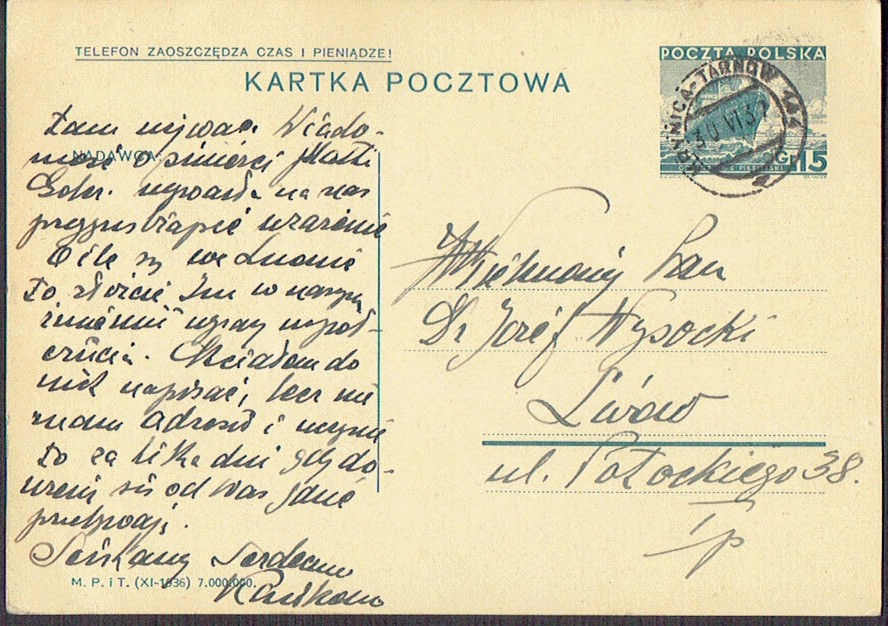 TELEFON ZAOSZCZĘDZA CZAS I PIENIĄDZE!
KARTKA POCZTOWA
POCZTA POLSKA
Gr 15
KRYNICA-TARNÓW
30 VI 37
NADAWCA:
tam Wiado-
mość o śmierci Matki
na nas
przygnębiające wrażenie
O ile są we Lwowie
to złóżcie Im w naszym
imieniu wyrazy współ-
czucia. Chciałam do
nich napisać, lecz nie
znam adresu i
to za kilka dni gdy do-
się od Was gdzie
przebywają.
Ściskamy Serdecznie
M. P. i T. (XI-1936) 7.000.000.
Wielmożny Pan
Dr Józef Wysocki
Lwów
ul. Potockiego 38.
I p